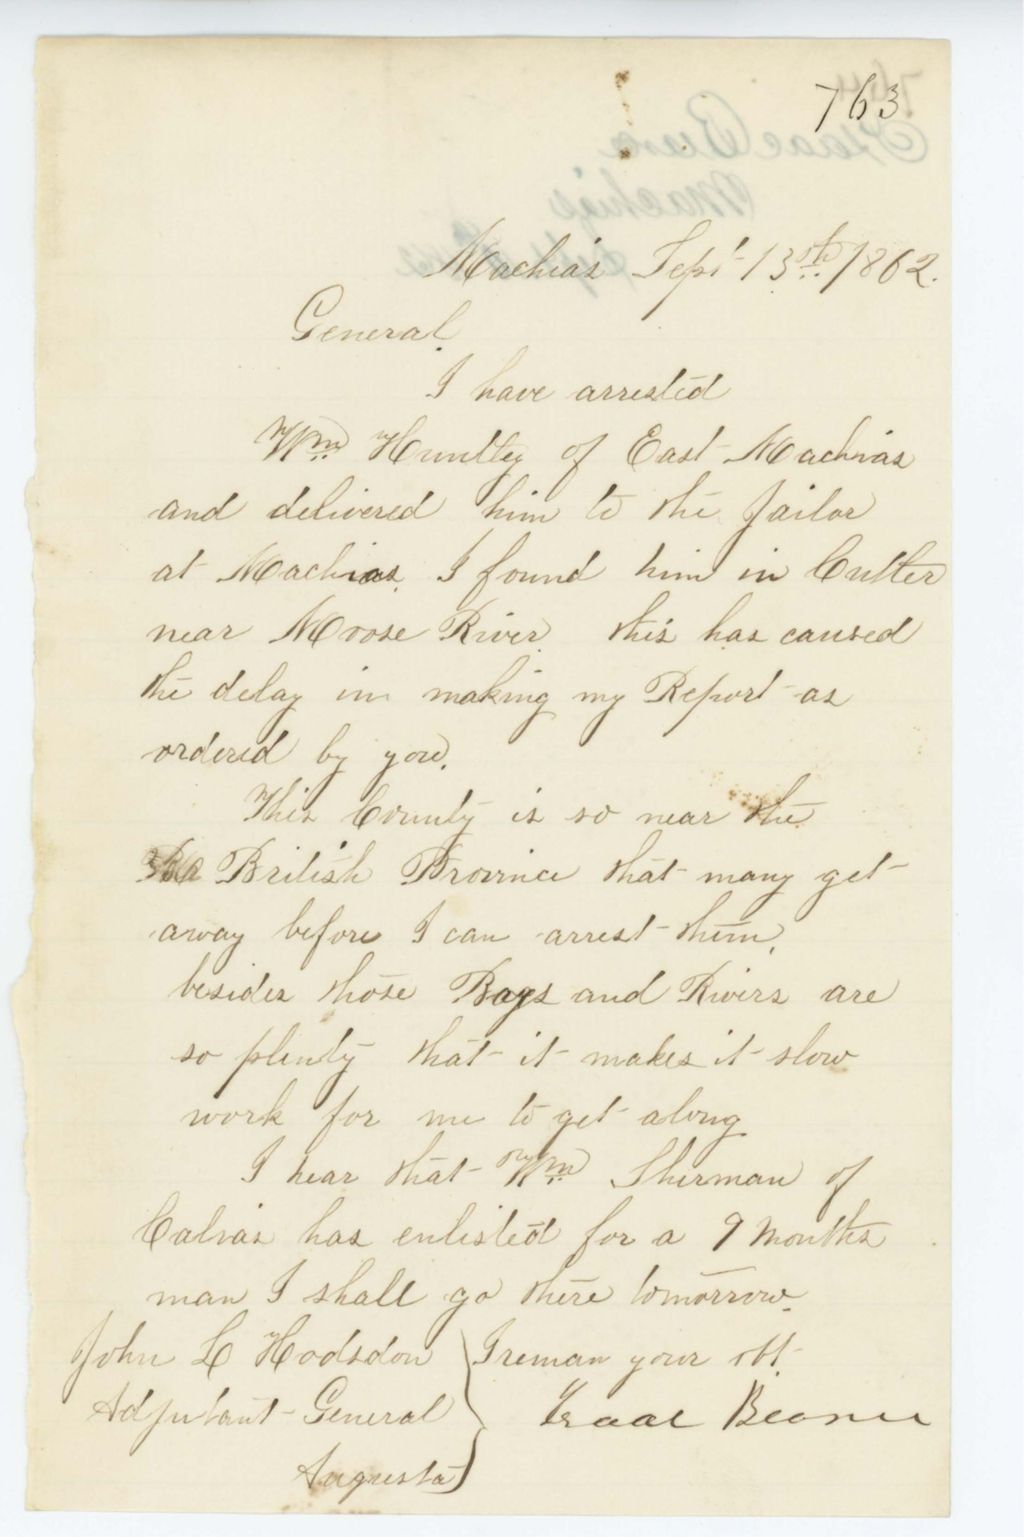 763
Machias Sept 13th. 1862.
General.
I have arrested
Wm Huntley of East Machias
and delivered him to the Jailor
at Machias. I found him in Cutler
near Moose River. this has caused
the delay in making my Report as
ordered by you.
This County is so near the
British Province that many get
away before I can arrest them.
besides those Bays and Rivers are
so plenty that it makes it slow
work for me to get along
I hear that Wm Sherman of
Calias has enlisted for a 9 Months
man I shall go there tomorrow.
John L Hodsdon
Adjutant General
Augusta
I reman your obt
Isaac